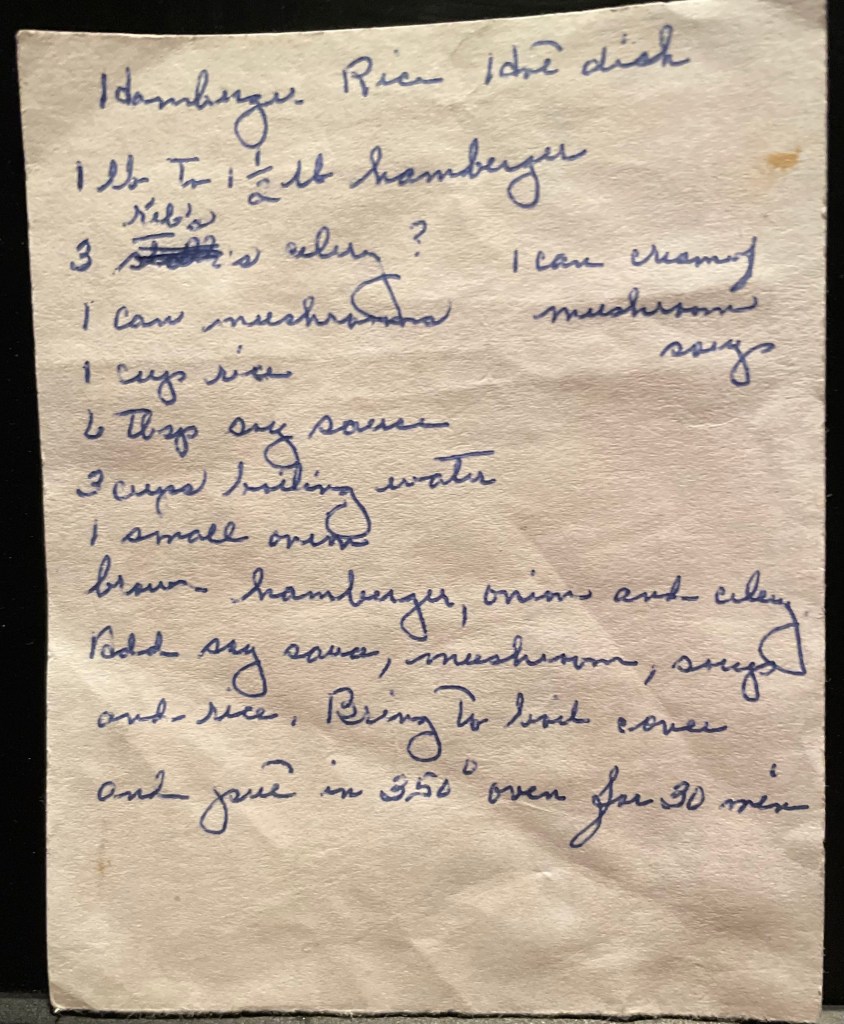 Hamberger Rice Hot dish
1 lb To 1 1/2 lb hamberger
rib's
3 celery ?
1 can cream of
1 can mushrooms
mushroom
soup
1 cup rice
Tbsp soy sauce
3 cups boiling water
1 small onion
brown hamberger, onion and celery
Add soy sauce, mushroom, soup
and rice. Bring To boil cover
and put in 350° oven for 30 min